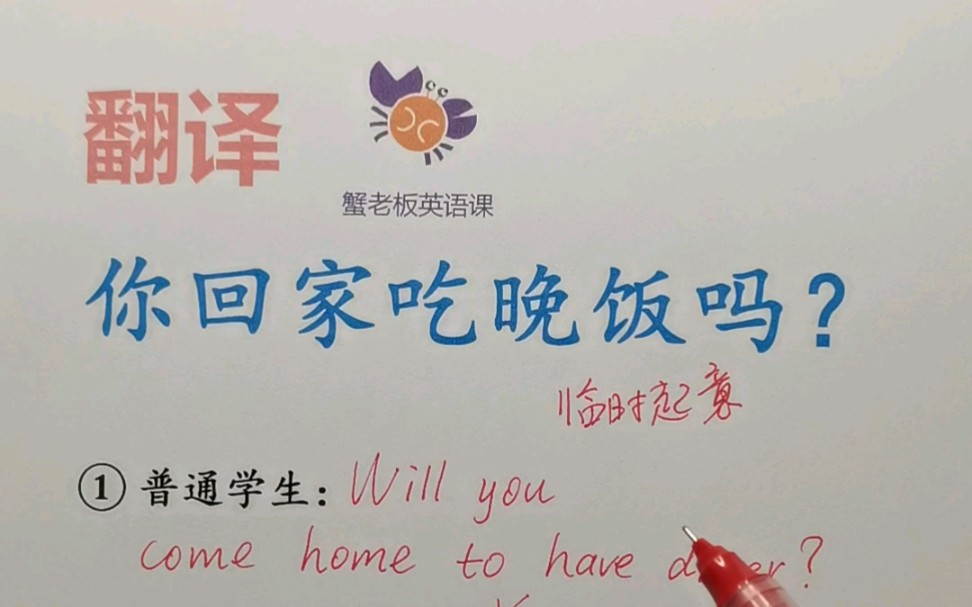 翻译
蟹老板英语课
你回家吃晚饭吗?
临时起意
① 普通学生: Will you
come home to have ?